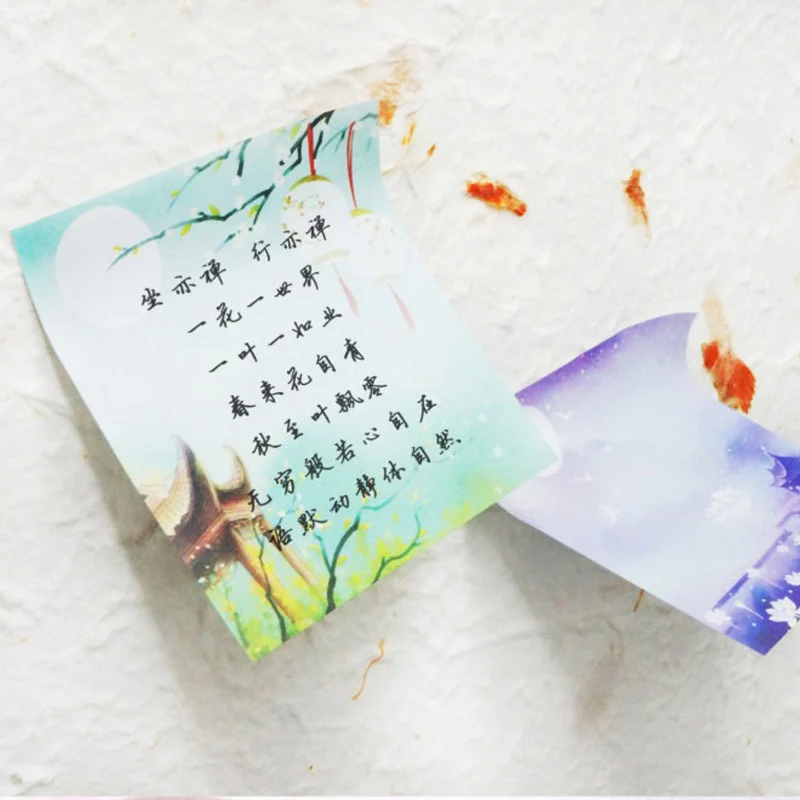 坐亦禅 行亦禅
一花一世界
一叶一如业
春来花自青
秋至叶飘零
无穷般若心自在
语默动静体自然